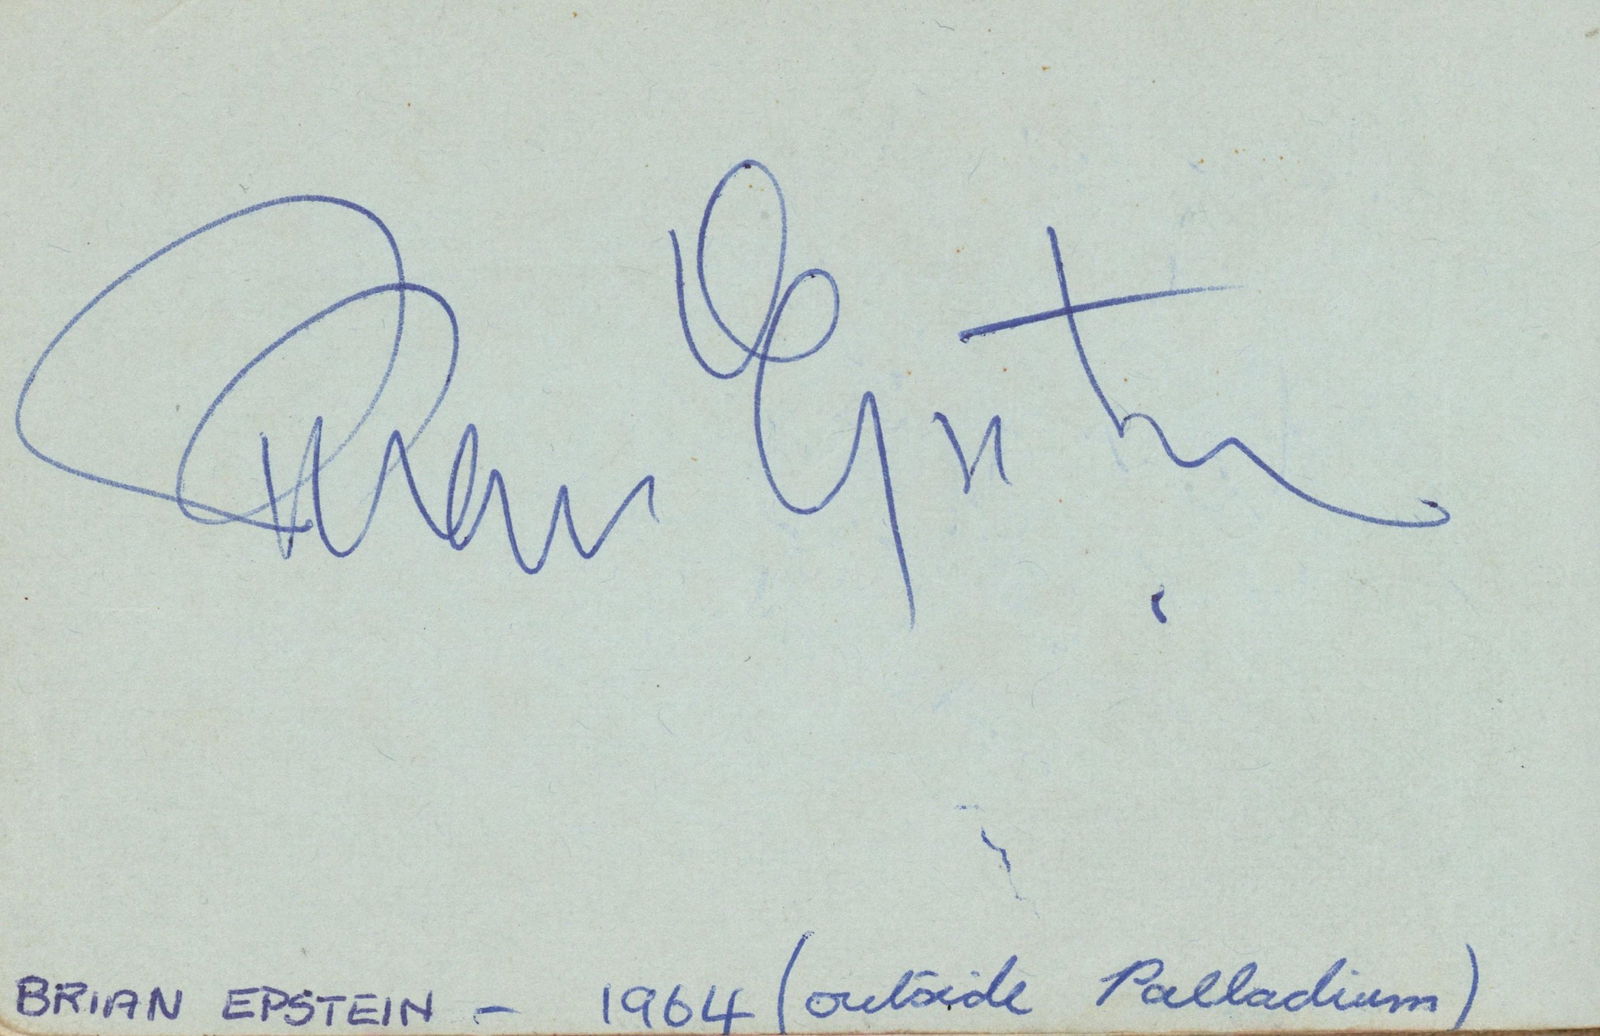 Brian Epstein
BRIAN EPSTEIN - 1964 (outside Palladium)